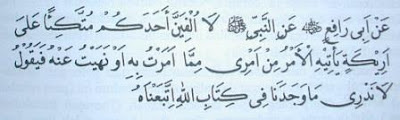 عَنْ اَبِى رَافِعٍ ﷺ عَنِ النَّبِيِّ ﷺ لَا اُلْفِيَنَّ اَحَدَكُمْ مُتَّكِئًا عَلَىَ
اَرِيْكَةٍ يَأْتِيْهِ الْاَمْرُ مِنْ اَمْرِى مِمَّا اَمَرْتُ بِهِ اَوْ نَهَيْتُ عَنْهُ فَيَقُوْلُ
لَا نَدْرِى مَا وَجَدْنَا فِى كِتَابِ اللهِ اتَّبَعْنَاهُ